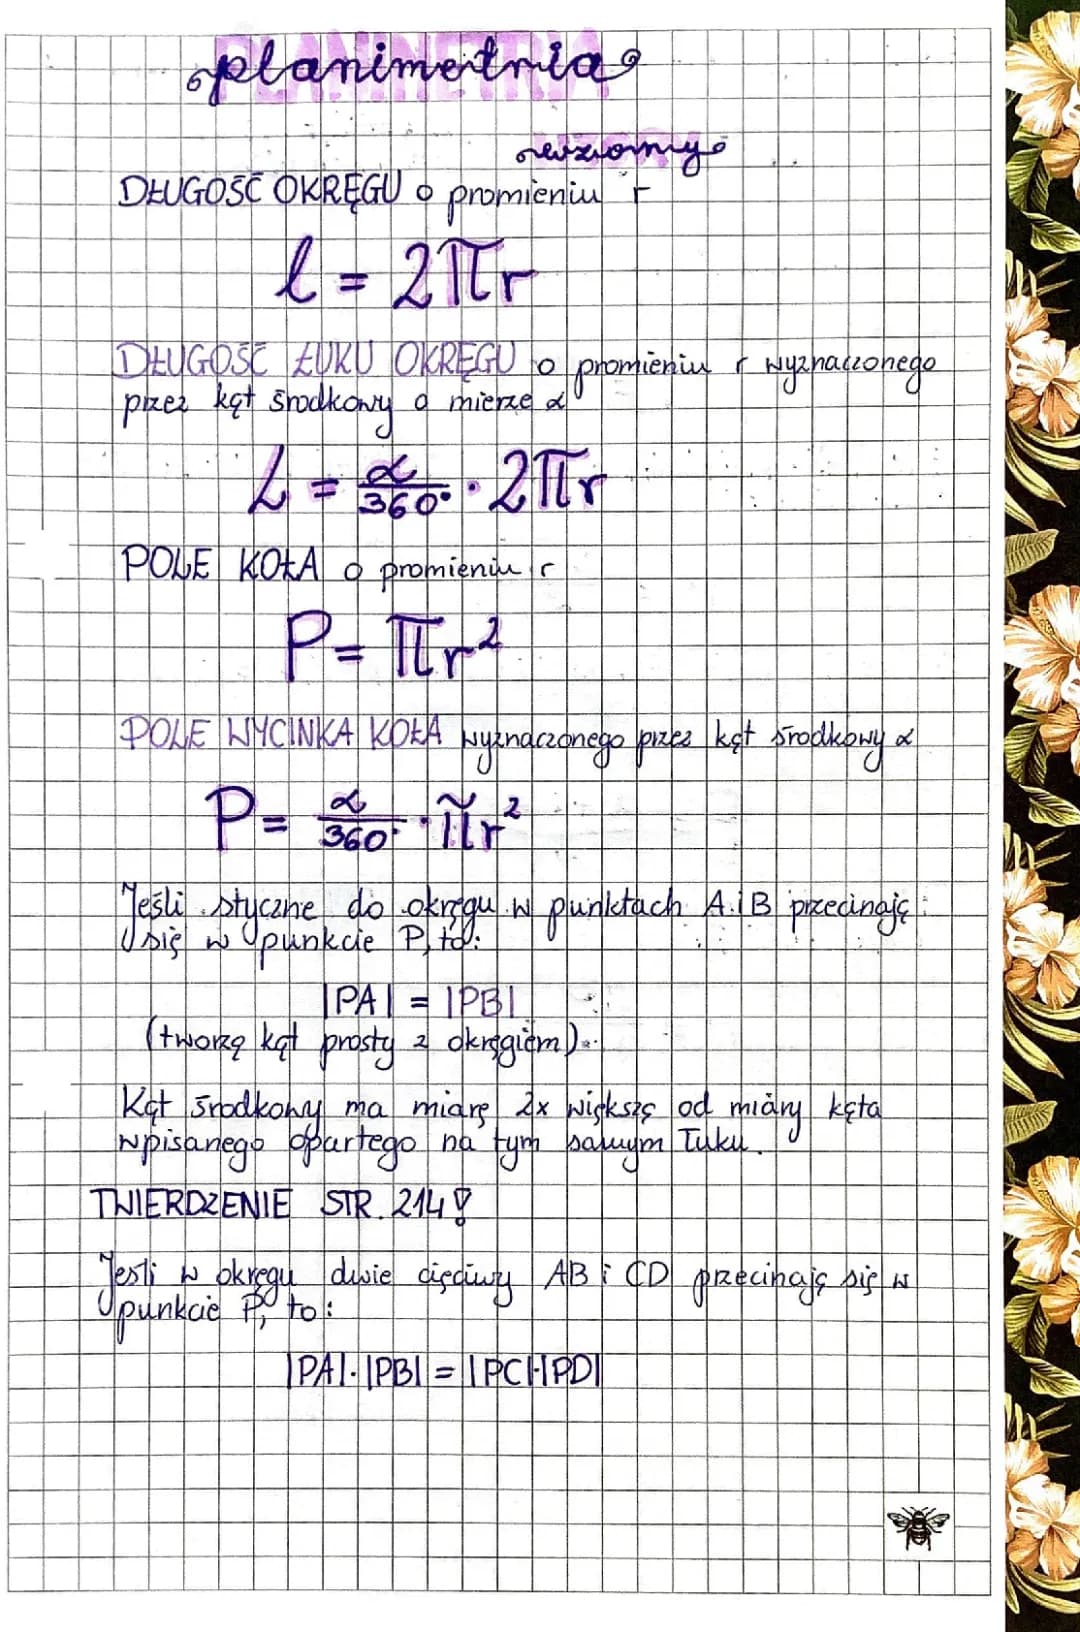 planimetria
wzory
DŁUGOŚĆ OKRĘGU o promieniu r
l = 2πr
DŁUGOŚĆ ŁUKU OKRĘGU o promieniu r wyznaczonego
przez kąt środkowy o mierze α
L = α/360° · 2πr
POLE KOŁA o promieniu r
P = πr²
POLE WYCINKA KOŁA wyznaczonego przez kąt środkowy α
P = α/360° · πr²
Jeśli styczne do okręgu w punktach A i B przecinają
się w punkcie P, to:
|PA| = |PB|
(tworzą kąt prosty z okręgiem)
Kąt środkowy ma miarę 2x większą od miary kąta
wpisanego opartego na tym samym łuku.
TWIERDZENIE STR. 214!
Jeśli w okręgu dwie cięciwy AB i CD przecinają się w
punkcie P, to:
|PA|·|PB| = |PC|·|PD|